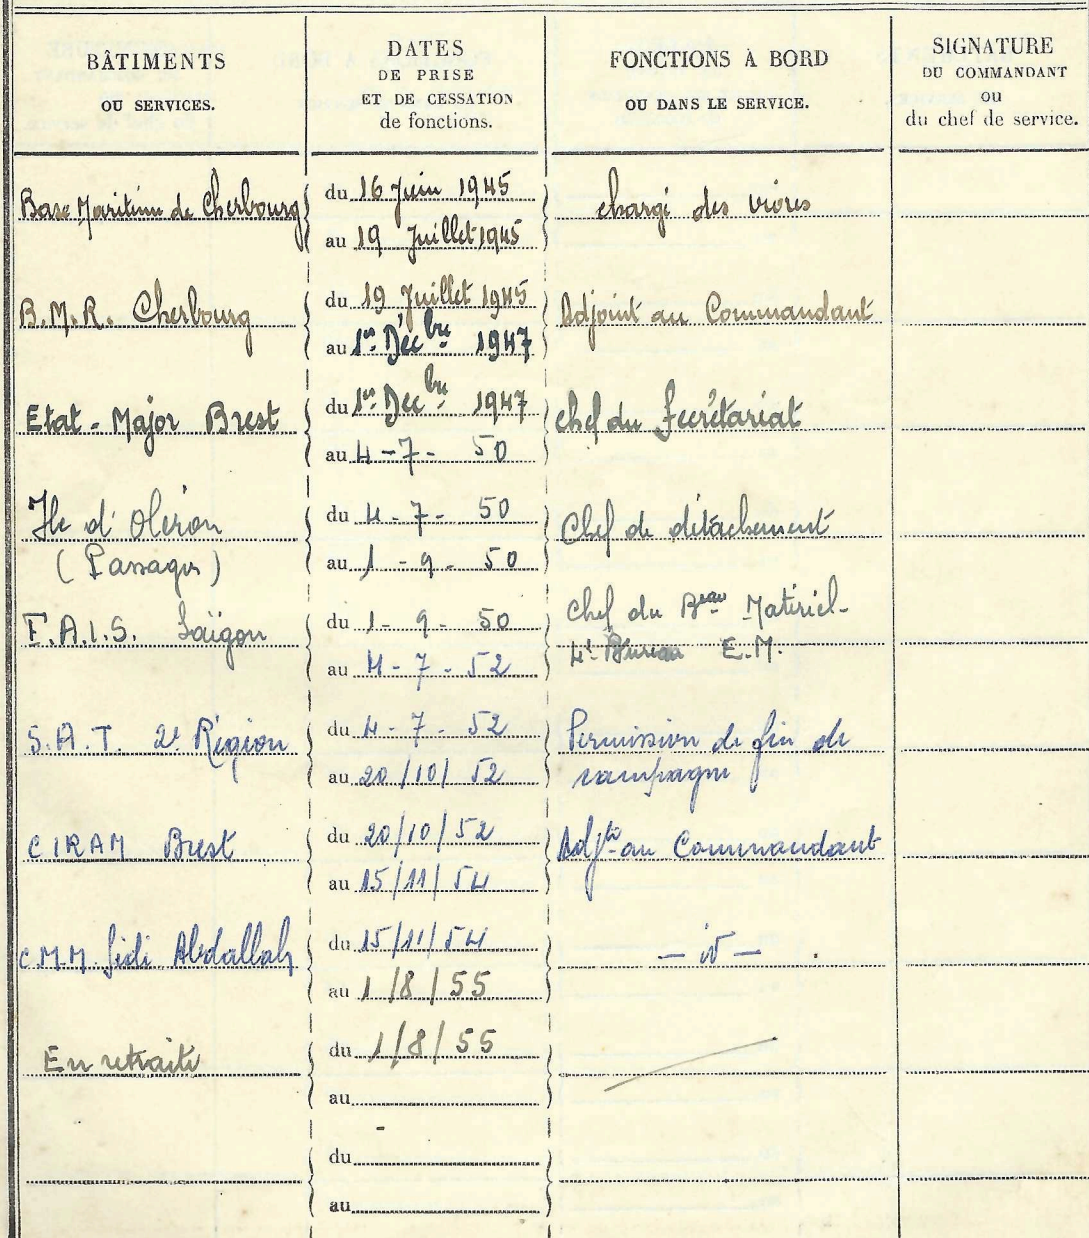 BÂTIMENTS
OU SERVICES.
DATES
DE PRISE
ET DE CESSATION
de fonctions.
FONCTIONS À BORD
OU DANS LE SERVICE.
SIGNATURE
DU COMMANDANT
ou
du chef de service.
Base Maritime de Cherbourg
du 16 Juin 1945
au 19 Juillet 1945
chargé des vivres
B.M.R. Cherbourg
du 19 Juillet 1945
au 1er Décbre 1947
Adjoint au Commandant
Etat-Major Brest
du 1er Décbre 1947
au 4-7-50
chef du Secrétariat
Ile d'Oléron
(Passager)
du 4-7-50
au 1-9-50
Chef de détachement
F.A.I.S. Saïgon
du 1-9-50
au 4-7-52
Chef du Beau Matériel-
4e Bureau E.M.
S.A.T. 2e Région
du 4-7-52
au 20/10/52
Permission de fin de
campagne
CIRAM Brest
du 20/10/52
au 15/11/54
Adjt au Commandant
C.M.M. Sidi Abdallah
du 15/11/54
au 1/8/55
- id -
En retraite
du 1/8/55
au
du
au